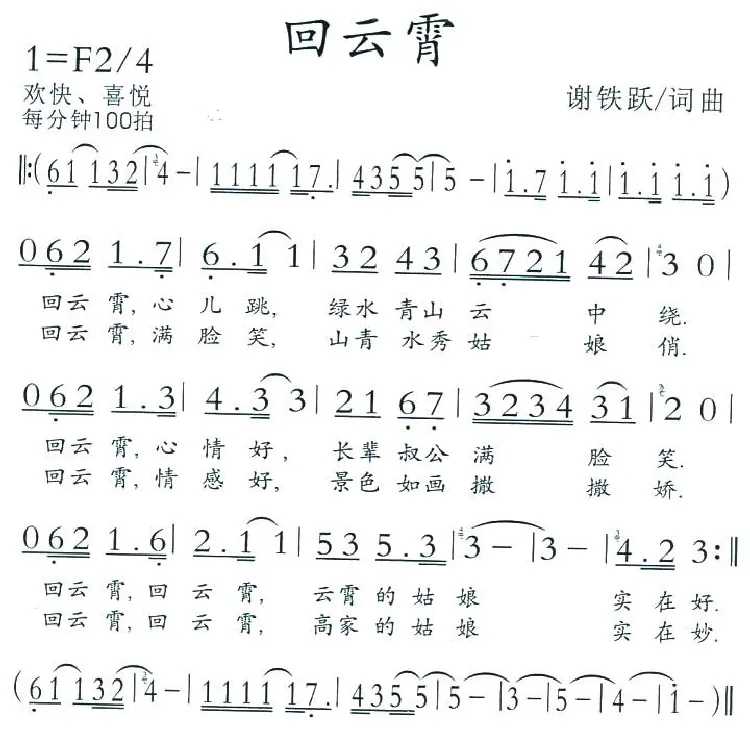 回云霄
1=F2/4
欢快、喜悦
谢铁跃/词曲
每分钟100拍
‖:(61 132|4-|1111 17.|4355|5-|1.7 1.1|1.1 1.1)
062 1.7|6.1 1|32 43|6721 42|3 0|
回云霄,心儿跳, 绿水青山云 中 绕.
回云霄,满脸笑, 山青水秀姑 娘 俏.
062 1.3|4.3 3|21 67|3234 31|2 0|
回云霄,心情好, 长辈叔公满 脸 笑.
回云霄,情感好, 景色如画撒 撒 娇.
062 1.6|2.1 1|53 5.3|3-|3-|4.2 3:‖
回云霄,回云霄, 云霄的姑娘 实在好.
回云霄,回云霄, 高家的姑娘 实在妙.
(61 132|4-|1111 17.|4355|5-|3-|5-|4-|1-)‖